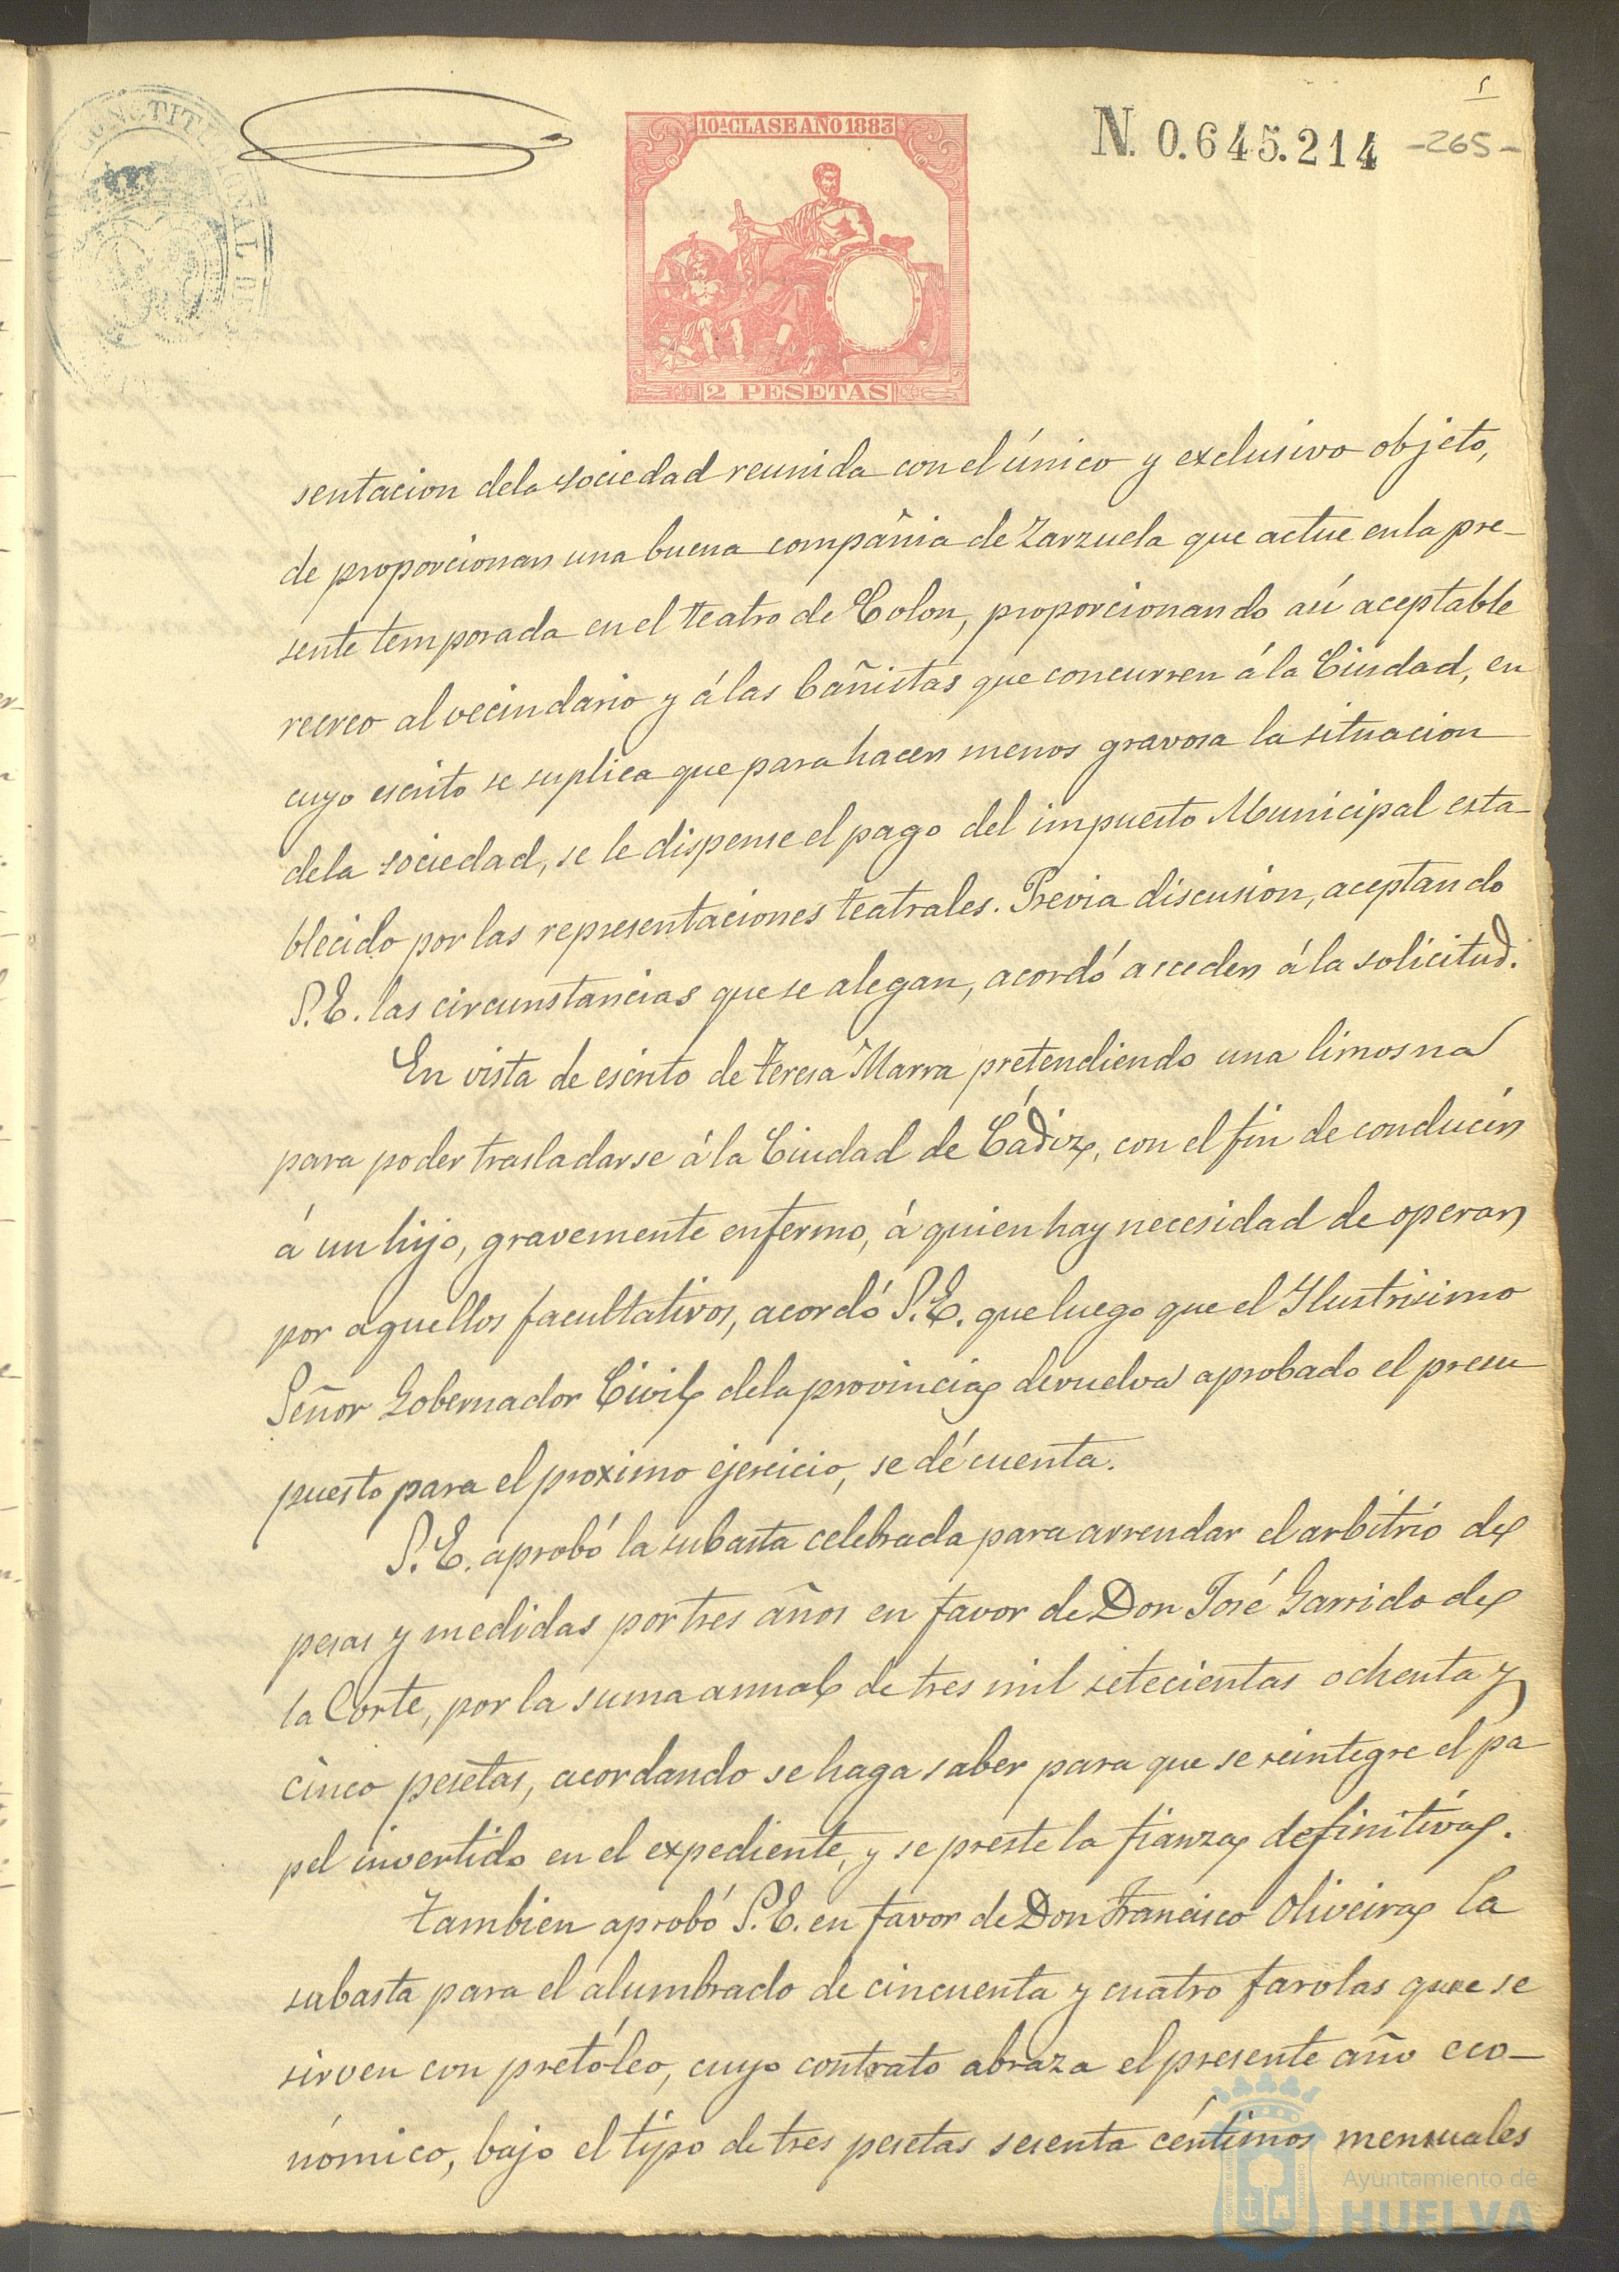 N. 0.645.214 -265-
10ª CLASE AÑO 1883
2 PESETAS
sentacion dela sociedad reunida con el único y exclusivo objeto,
de proporcionar una buena compañia de Zarzuela que actue en la pre-
sente temporada en el teatro de Colon, proporcionando asi aceptable
recreo al vecindario y á las bañistas que concurren á la Ciudad, en
cuyo escrito se suplica que para hacer menos gravosa la situacion
dela sociedad, se le dispense el pago del impuesto Municipal esta-
blecido por las representaciones teatrales. Previa discusion, aceptando
S.E. las circunstancias que se alegan, acordó acceder á la solicitud.
En vista de escrito de Teresa Marra pretendiendo una limosna
para poder trasladarse á la Ciudad de Cádiz, con el fin de conducir
á un hijo, gravemente enfermo, á quien hay necesidad de operar
por aquellos facultativos, acordó S.E. que luego que el Ilustrisimo
Señor Gobernador Civil dela provincia devuelva aprobado el presu
puesto para el proximo ejercicio, se dé cuenta.
S.E. aprobó la subasta celebrada para arrendar el arbitrio de
pesas y medidas por tres años en favor de Don José Garrido de
la Corte, por la suma annal de tres mil setecientas ochenta y
cinco pesetas, acordando se haga saber para que se reintegre el pa
pel invertido en el expediente, y se preste la fianza definitiva.
Tambien aprobó S.E. en favor de Don Francisco Oliveira la
subasta para el alumbrado de cincuenta y cuatro farolas que se
sirven con pretóleo, cuyo contrato abraza el presente año eco-
nómico, bajo el tipo de tres pesetas sesenta céntimos mensuales
Ayuntamiento de
HUELVA